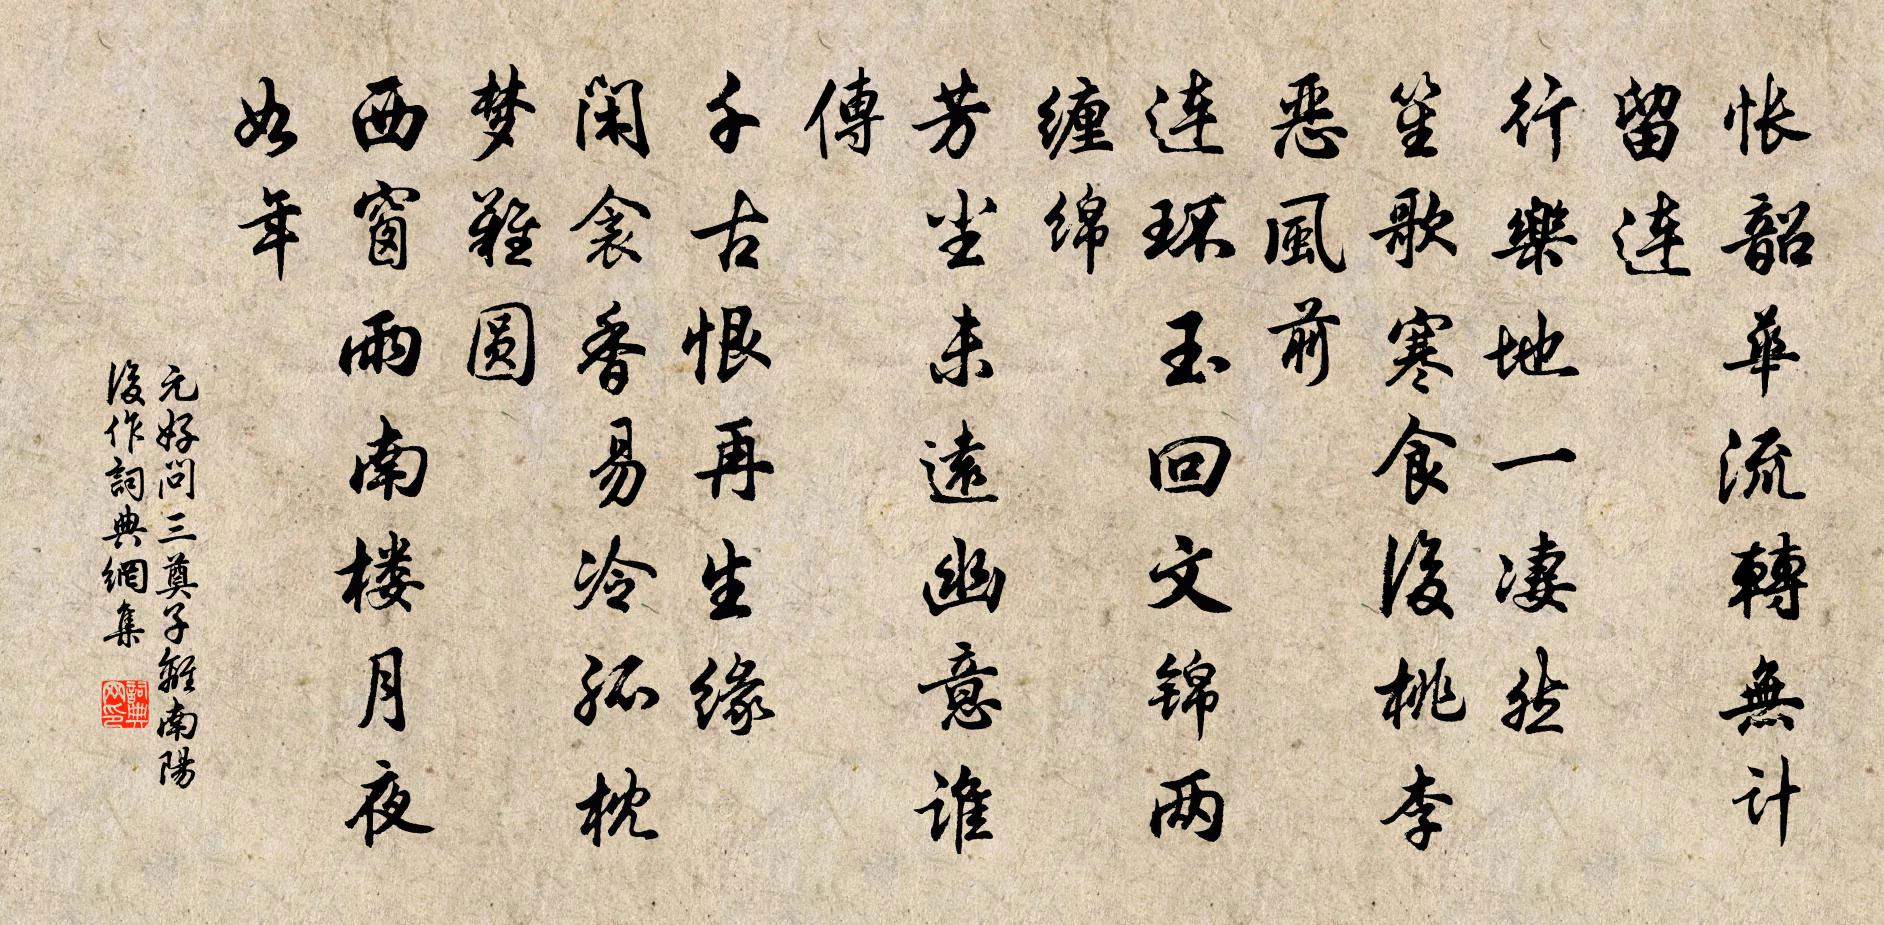 怅韶華流轉無計
留连
行樂地一凄然
笙歌寒食後桃李
恶風前
连环玉回文锦两
缠绵
芳尘未遠幽意谁
傳
千古恨再生缘
闲衾香易冷孤枕
梦難圆
西窗雨南楼月夜
如年
元好问三奠子離南陽
後作詞典網集
詞典网印